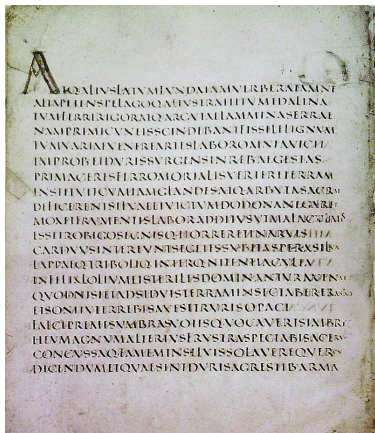 ATQ ALIVS LATVM FVNDA IAM VERBERAT AMNE
ALTA PETENS PELAGOQ ALIVS TRAHIT VMIDA LINA
TVM FERRI RIGOR ATQ ARGVTAE LAMMINA SERRAE
NAM PRIMI CVNEIS SCINDEBANT FISSILE LIGNVM
TVM VARIAE VENERE ARTES LABOR OMNIA VICIT
IMPROBVS ET DVRIS VRGENS IN REBVS EGESTAS
PRIMA CERES FERRO MORTALIS VERTERE TERRAM
INSTITVIT CVM IAM GLANDES ATQ ARBVTA SACRAE
DEFICERENT SILVAE ET VICTVM DODONA NEGARET
MOX ET FRVMENTIS LABOR ADDITVS VT MALA CVLMOS
ESSET ROBIGO SEGNISQ HORRERET IN ARVIS
CARDVVS INTEREVNT SEGETES SVBIT ASPERA SILVA
LAPPAEQ TRIBOLIQ INTERQ NITENTIA CVLTA
INFELIX LOLIVM ET STERILES DOMINANTVR AVENAE
QVOD NISI ET ADSIDVIS TERRAM INSECTABERE RASTRIS
ET SONITV TERREBIS AVES ET RVRIS OPACI
FALCE PREMES VMBRAS VOTISQ VOCAVERIS IMBRE
HEV MAGNVM ALTERIVS FRVSTRA SPECTABIS ACERV
CONCVSSAQ FAMEM IN SILVIS SOLAVERE QVERCV
DICENDVM ET QVAE SINT DVRIS AGRESTIB ARMA